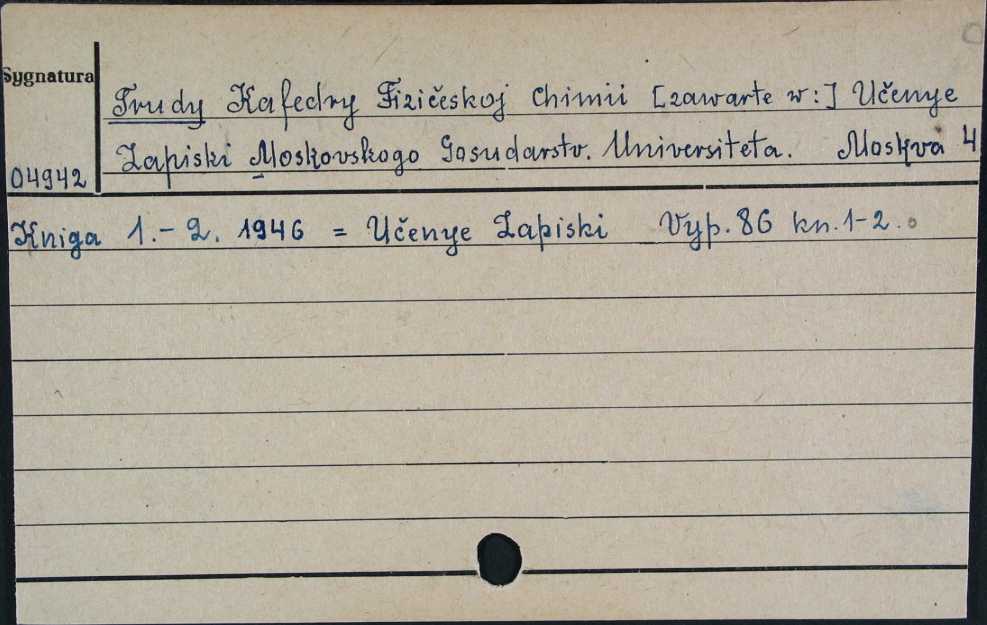 Sygnatura
Trudy Kafedry Fizičeskoj Chimii [zawarte w:] Učenye
Zapiski Moskovskogo Gosudarstv. Universiteta. Moskva 4
04942
Kniga 1.-2. 1946 = Učenye Zapiski Vyp. 86 kn. 1-2.